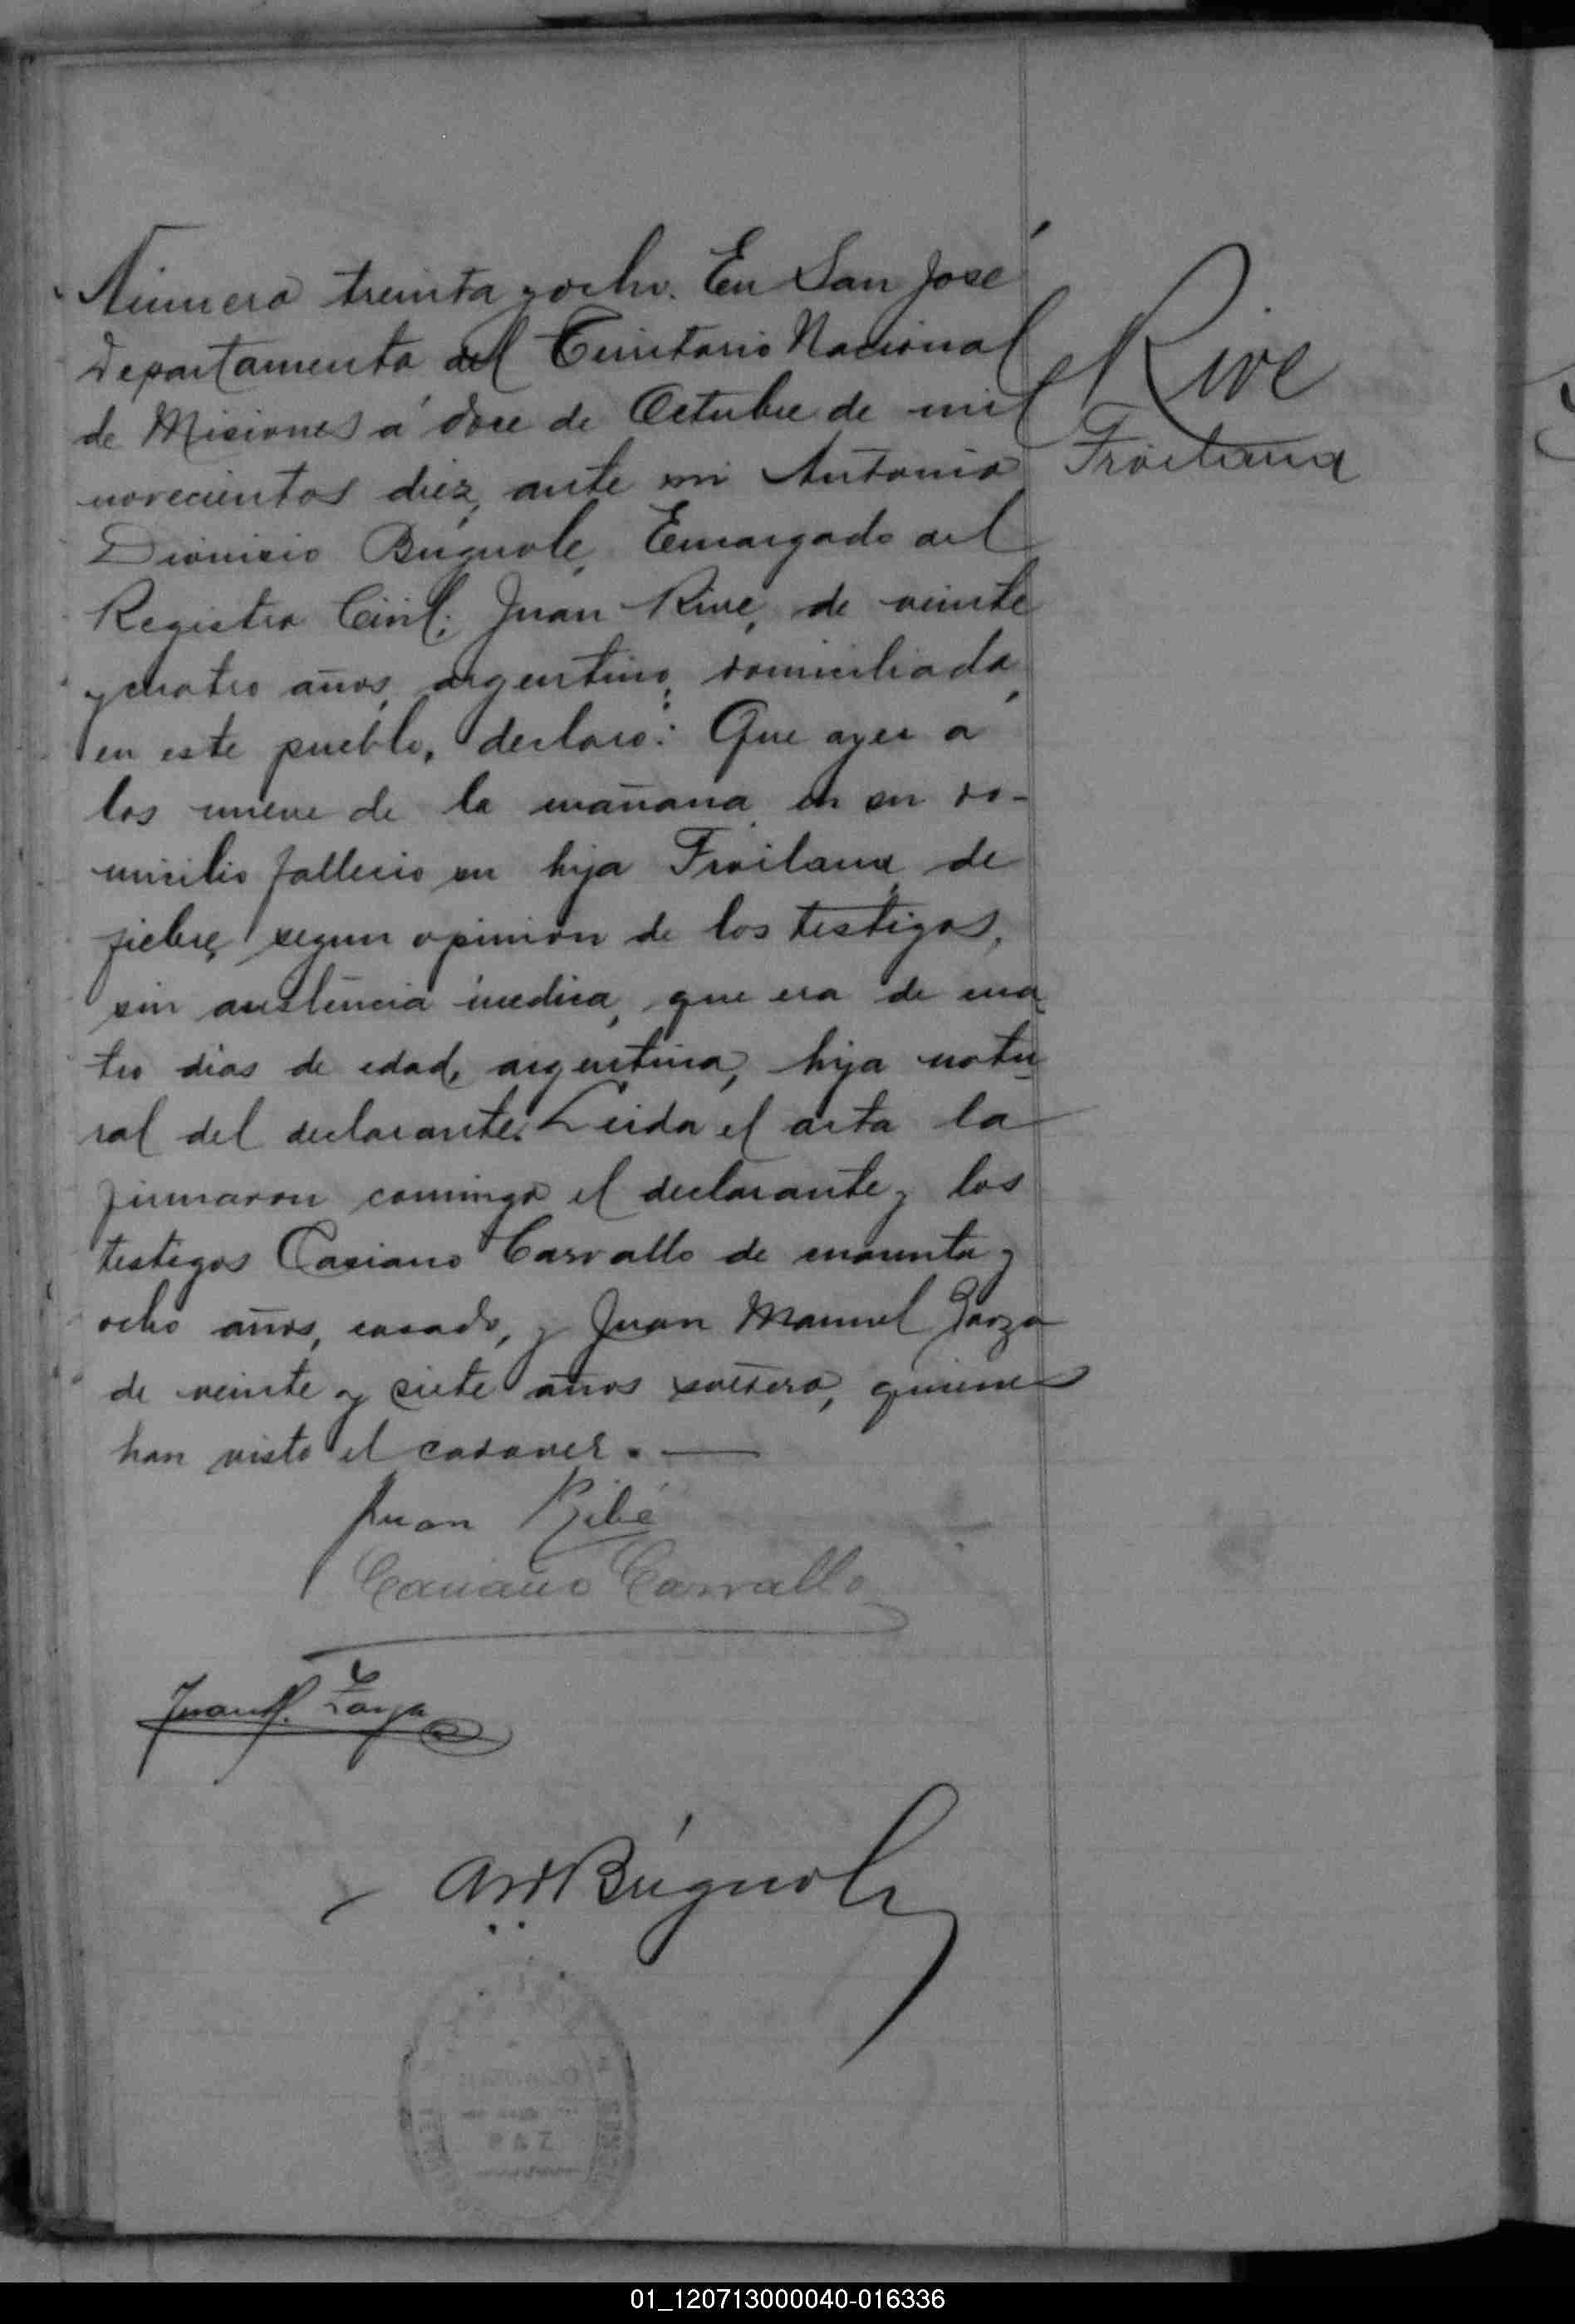 Número treinta y ocho. En San José
Rive
Departamento del Territorio Nacional
de Misiones á doce de Octubre de mil
Froilana
novecientos diez, ante mi Antonio
Dionisio Búgnole, Encargado del
Registro Civil; Juan Rive, de veinte
y cuatro años, argentino, domiciliado
en este pueblo, declaró: Que ayer á
las nueve de la mañana en su do-
micilio falleció su hija Froilana, de
fiebre, segun opinión de los testigos,
sin asistencia médica, que era de cua
tro dias de edad, argentina, hija natu
ral del declarante. Leida el acta la
firmaron conmigo el declarante y los
testigos Casiano Carvallo de cuarenta y
ocho años, casado, y Juan Manuel Zarza
de veinte y siete años soltero, quienes
han visto el cadaver. —
Juan Ribé
Casiano Carvallo
Juan M. Zarza
AD Búgnole
01_120713000040-016336